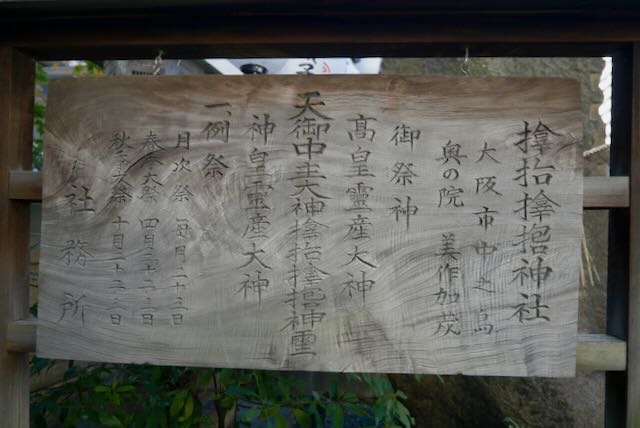 神社
大阪市中之島
奥の院　美作加茂
御祭神
高皇靈産大神
天御中主大神
神皇靈産大神
一、例祭
月次祭　毎月二十三日
春季大祭　四月二十三日
秋季大祭　十月二十三日
社務所